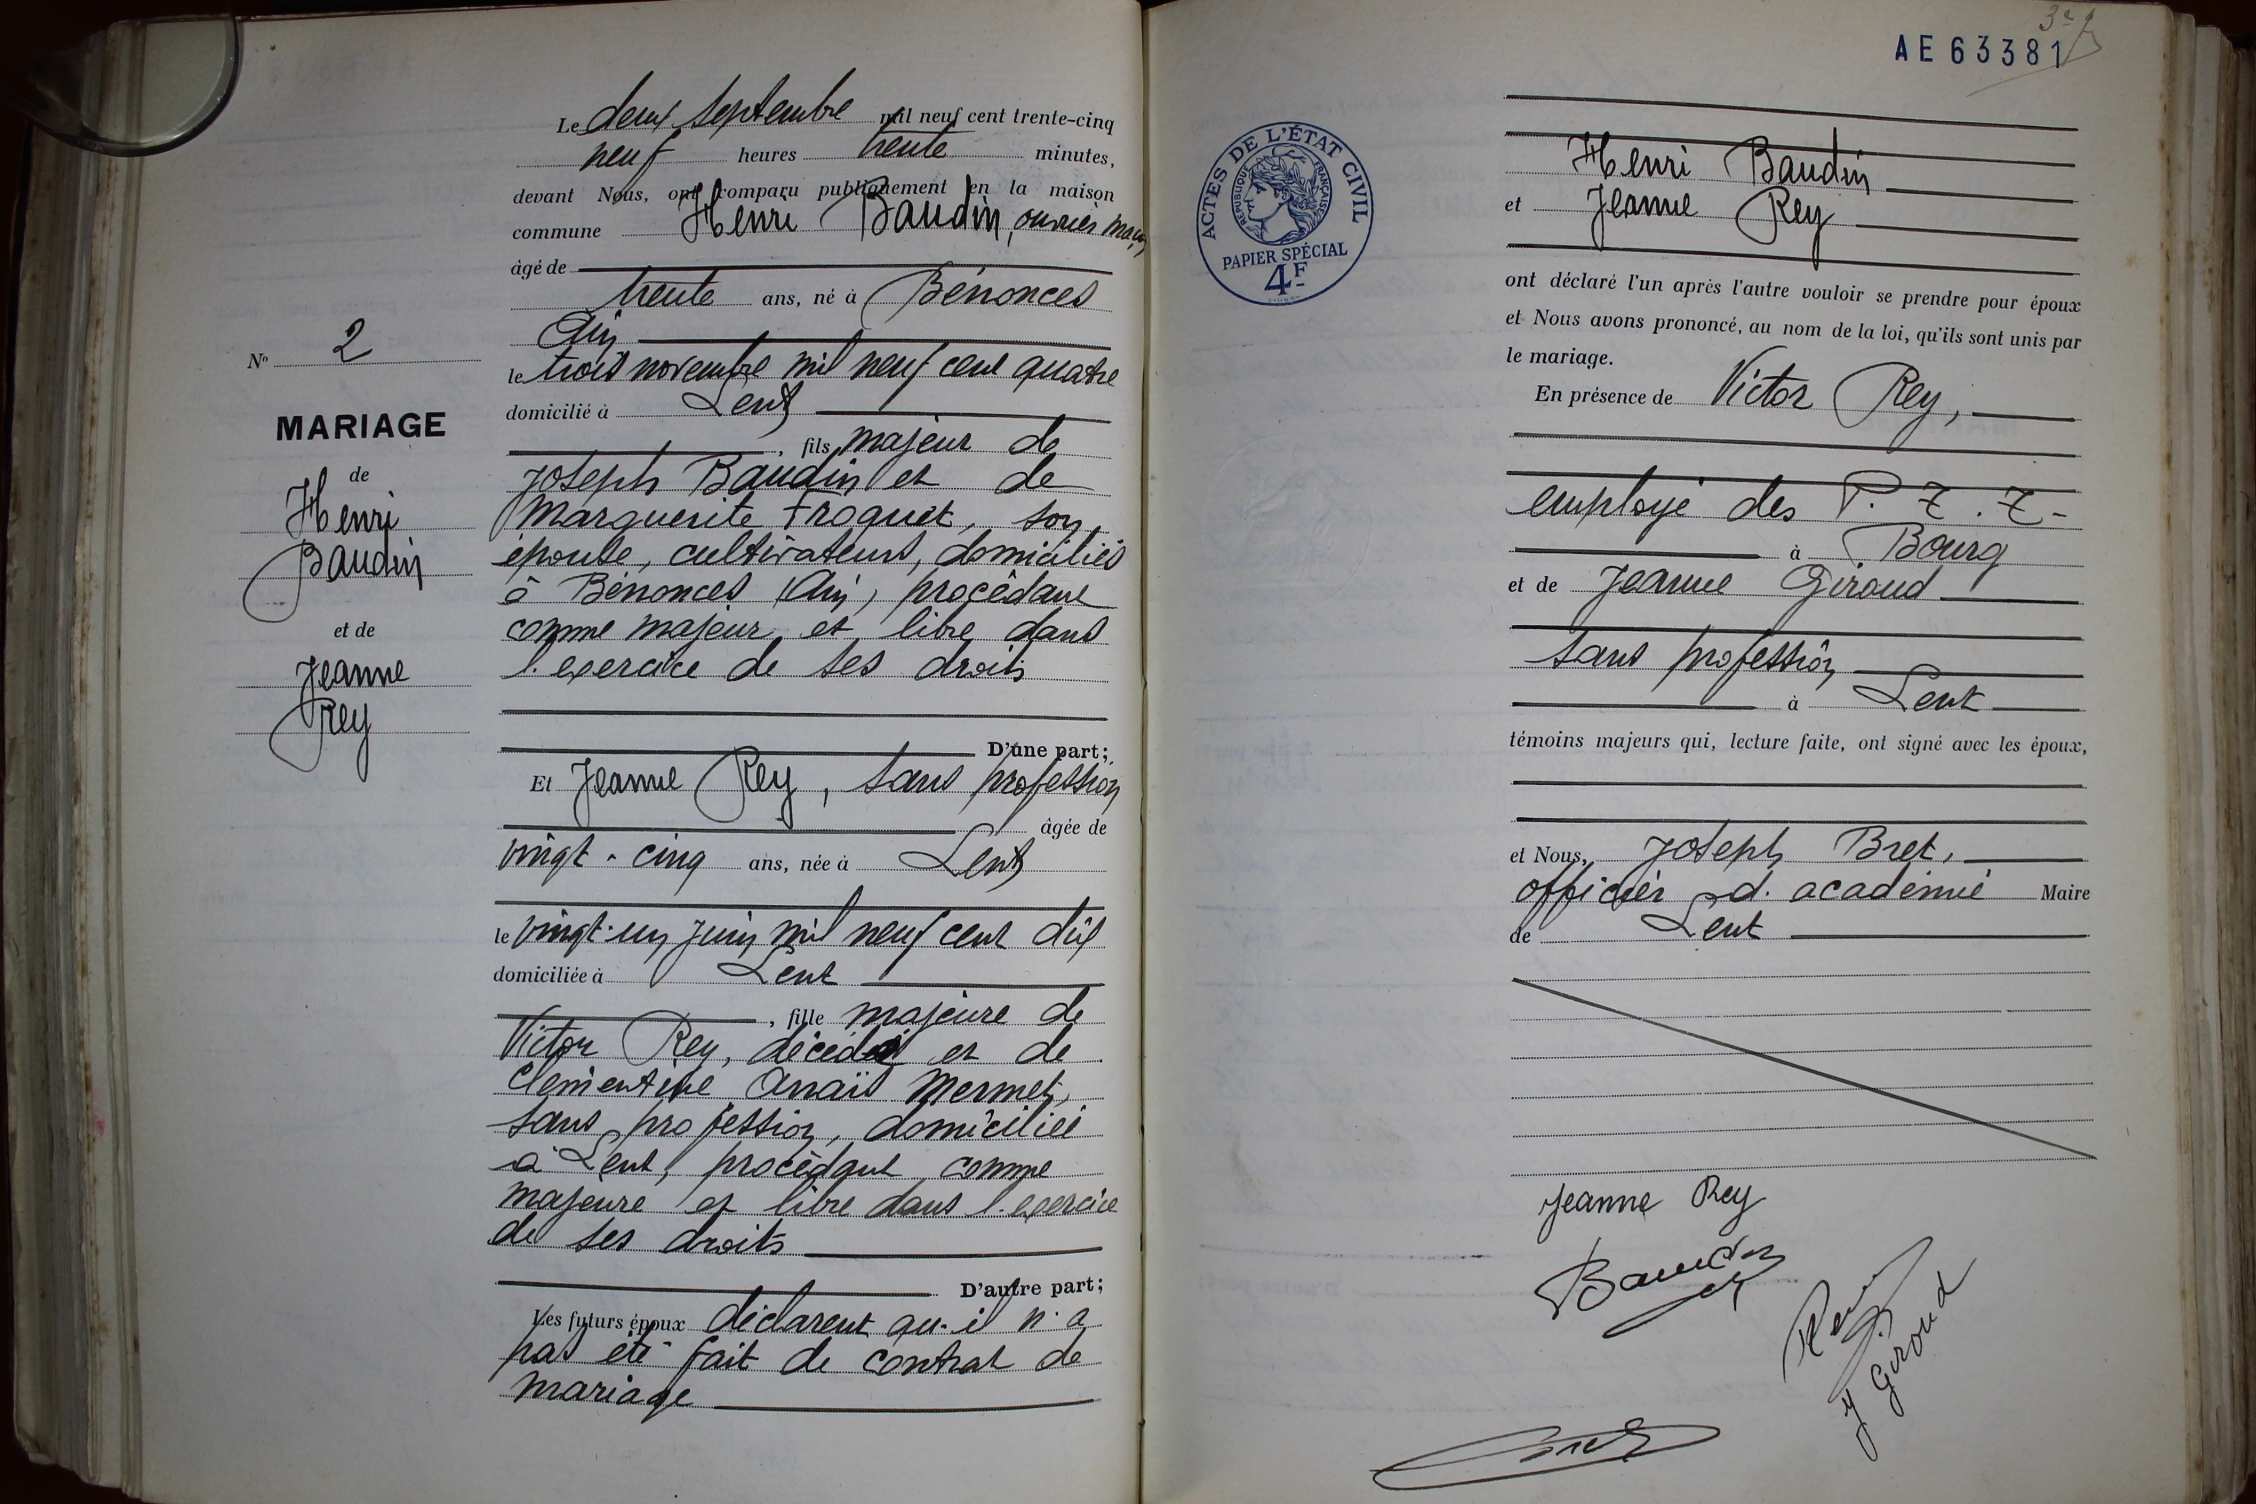 Nº 2
MARIAGE
de
Henri
Baudin
et de
Jeanne
Rey
Le deux septembre mil neuf cent trente-cinq
neuf heures trente minutes,
devant Nous, ont comparu publiquement en la maison
commune Henri Baudin, ouvrier maçon
âgé de
trente ans, né à Bénonces
Ain
le trois novembre mil neuf cent quatre
domicilié à Lent
fils majeur de
Joseph Baudin et de
Marguerite Froquet, son
épouse, cultivateurs, domiciliés
à Bénonces (Ain), procédant
comme majeur et libre dans
l'exercice de ses droits
D'une part;
Et Jeanne Rey, sans profession
âgée de
vingt-cinq ans, née à Lent
le vingt-un juin mil neuf cent dix
domiciliée à Lent
, fille majeure de
Victor Rey, décédé et de
Clémentine Anaïs Mermet,
sans profession, domiciliée
à Lent, procédant comme
majeure et libre dans l'exercice
de ses droits
D'autre part;
Les futurs époux déclarent qu'il n'a
pas été fait de contrat de
mariage
AE 63381
ACTES DE L'ÉTAT CIVIL
RÉPUBLIQUE FRANÇAISE
PAPIER SPÉCIAL
4F
Henri Baudin
et Jeanne Rey
ont déclaré l'un après l'autre vouloir se prendre pour époux
et Nous avons prononcé, au nom de la loi, qu'ils sont unis par
le mariage.
En présence de Victor Rey,
employé des P.T.T.
à Bourg
et de Jeanne Giroud
sans profession
à Lent
témoins majeurs qui, lecture faite, ont signé avec les époux,
et Nous, Joseph Bret,
officier d'académie Maire
de Lent
Jeanne Rey
Baudin
J Giroud